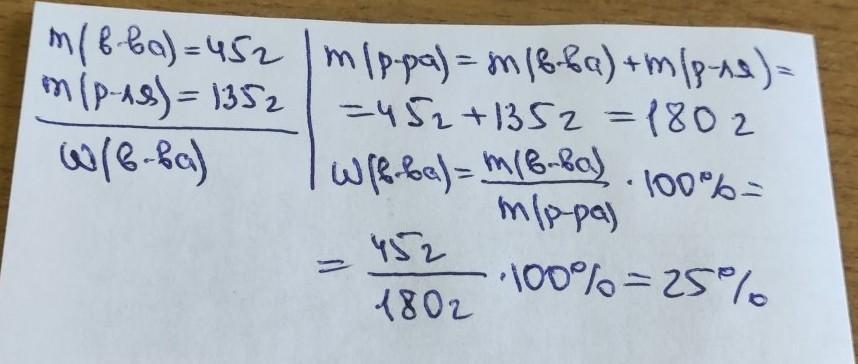 m(в-ва)=45г
m(р-ля)=135г
ω(в-ва)
m(р-ра)=m(в-ва)+m(р-ля)=
=45г+135г=180г
ω(в-ва)=m(в-ва)/m(р-ра)·100%=
=45г/180г·100%=25%